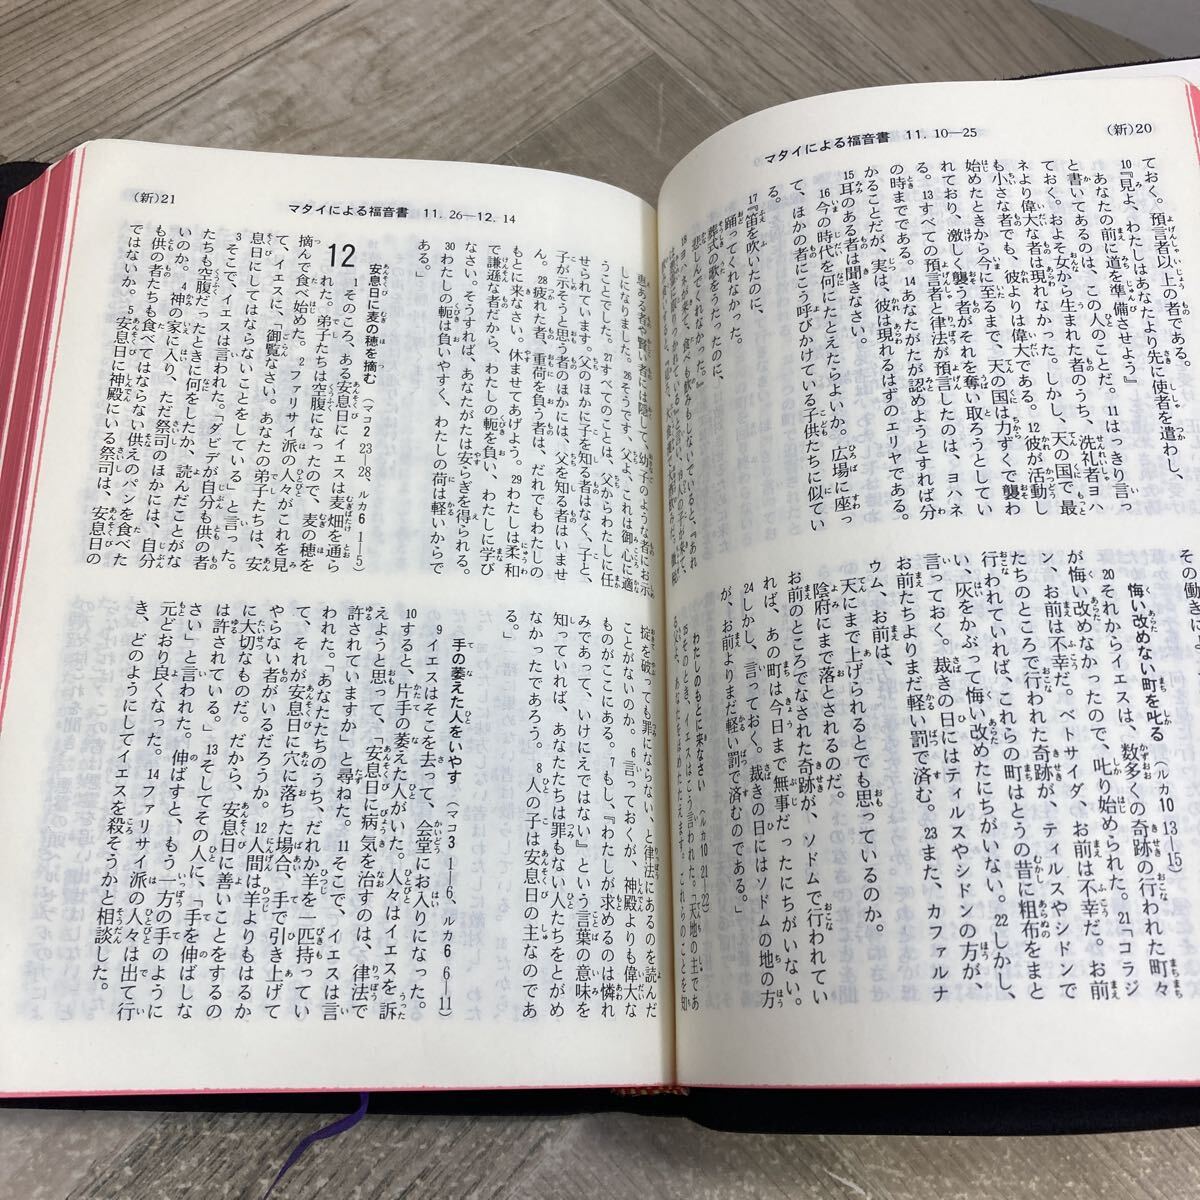 マタイによる福音書 11. 10—25
（新）20
ておく。預言者以上の者である。
10『見よ、わたしはあなたより先に使者を遣わし、
あなたの前に道を準備させよう』
と書いてあるのは、この人のことだ。11はっきり言っ
ておく。およそ女から生まれた者のうち、洗礼者ヨハ
ネより偉大な者は現れなかった。しかし、天の国で最
も小さな者でも、彼よりは偉大である。12彼が活動し
始めたときから今に至るまで、天の国は力ずくで襲わ
れており、激しく襲う者がそれを奪い取ろうとしてい
る。13すべての預言者と律法が預言したのは、ヨハネ
の時までである。14あなたがたが認めようとすれば分
かることだが、実は、彼は現れるはずのエリヤである。
15耳のある者は聞きなさい。
16今の時代を何にたとえたらよいか。広場に座っ
て、ほかの者にこう呼びかけている子供たちに似てい
る。
17『笛を吹いたのに、
踊ってくれなかった。
葬式の歌をうたったのに、
悲しんでくれなかった。』
18ヨハネが来て、食べも飲みもしないでいると、『あれ
は悪霊に取りつかれている』と言い、19人の子が来て、
その働きに
悔い改めない町を叱る （ルカ10 13—15）
20それからイエスは、数多くの奇跡の行われた町々
が悔い改めなかったので、叱り始められた。21「コラジ
ン、お前は不幸だ。ベトサイダ、お前は不幸だ。お前
たちのところで行われた奇跡が、ティルスやシドンで
行われていれば、これらの町はとうの昔に粗布をまと
い、灰をかぶって悔い改めたにちがいない。22しかし、
言っておく。裁きの日にはティルスやシドンの方が、
お前たちよりまだ軽い罰で済む。23また、カファルナ
ウム、お前は、
天にまで上げられるとでも思っているのか。
陰府にまで落とされるのだ。
お前のところでなされた奇跡が、ソドムで行われてい
れば、あの町は今日まで無事だったにちがいない。
24しかし、言っておく。裁きの日にはソドムの地の方
が、お前よりまだ軽い罰で済むのである。」
わたしのもとに来なさい （ルカ10 21—22）
25そのとき、イエスはこう言われた。「天地の主であ
る父よ、あなたをほめたたえます。これらのことを知
（新）21
マタイによる福音書 11. 26—12. 14
恵ある者や賢い者には隠して、幼子のような者にお示
しになりました。26そうです、父よ、これは御心に適
うことでした。27すべてのことは、父からわたしに任
せられています。父のほかに子を知る者はなく、子と、
子が示そうと思う者のほかには、父を知る者はいませ
ん。28疲れた者、重荷を負う者は、だれでもわたしの
もとに来なさい。休ませてあげよう。29わたしは柔和
で謙遜な者だから、わたしの軛を負い、わたしに学び
なさい。そうすれば、あなたがたは安らぎを得られる。
30わたしの軛は負いやすく、わたしの荷は軽いからで
ある。」
安息日に麦の穂を摘む （マコ2 23—28、ルカ6 1—5）
12 1そのころ、ある安息日にイエスは麦畑を通ら
れた。弟子たちは空腹になったので、麦の穂を
摘んで食べ始めた。2ファリサイ派の人々がこれを見
て、イエスに、「御覧なさい。あなたの弟子たちは、安
息日にしてはならないことをしている」と言った。
3そこで、イエスは言われた。「ダビデが自分も供の者
たちも空腹だったときに何をしたか、読んだことがな
いのか。4神の家に入り、ただ祭司のほかには、自分
も供の者たちも食べてはならない供えのパンを食べた
ではないか。5安息日に神殿にいる祭司は、安息日の
掟を破っても罪にならない、と律法にあるのを読んだ
ことがないのか。6言っておくが、神殿よりも偉大な
ものがここにある。7もし、『わたしが求めるのは憐れ
みであって、いけにえではない』という言葉の意味を
知っていれば、あなたたちは罪もない人たちをとがめ
なかったであろう。8人の子は安息日の主なのであ
る。」
手の萎えた人をいやす （マコ3 1—6、ルカ6 6—11）
9イエスはそこを去って、会堂にお入りになった。
10すると、片手の萎えた人がいた。人々はイエスを訴
えようと思って、「安息日に病気を治すのは、律法で
許されていますか」と尋ねた。11そこで、イエスは言
われた。「あなたたちのうち、だれか羊を一匹持ってい
て、それが安息日に穴に落ちた場合、手で引き上げて
やらない者がいるだろうか。12人間は羊よりもはるか
に大切なものだ。だから、安息日に善いことをするの
は許されている。」13そしてその人に、「手を伸ばしな
さい」と言われた。伸ばすと、もう一方の手のように
元どおり良くなった。14ファリサイ派の人々は出て行
き、どのようにしてイエスを殺そうかと相談した。